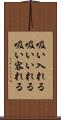 吸い入れる
吸いいれる
吸い容れる